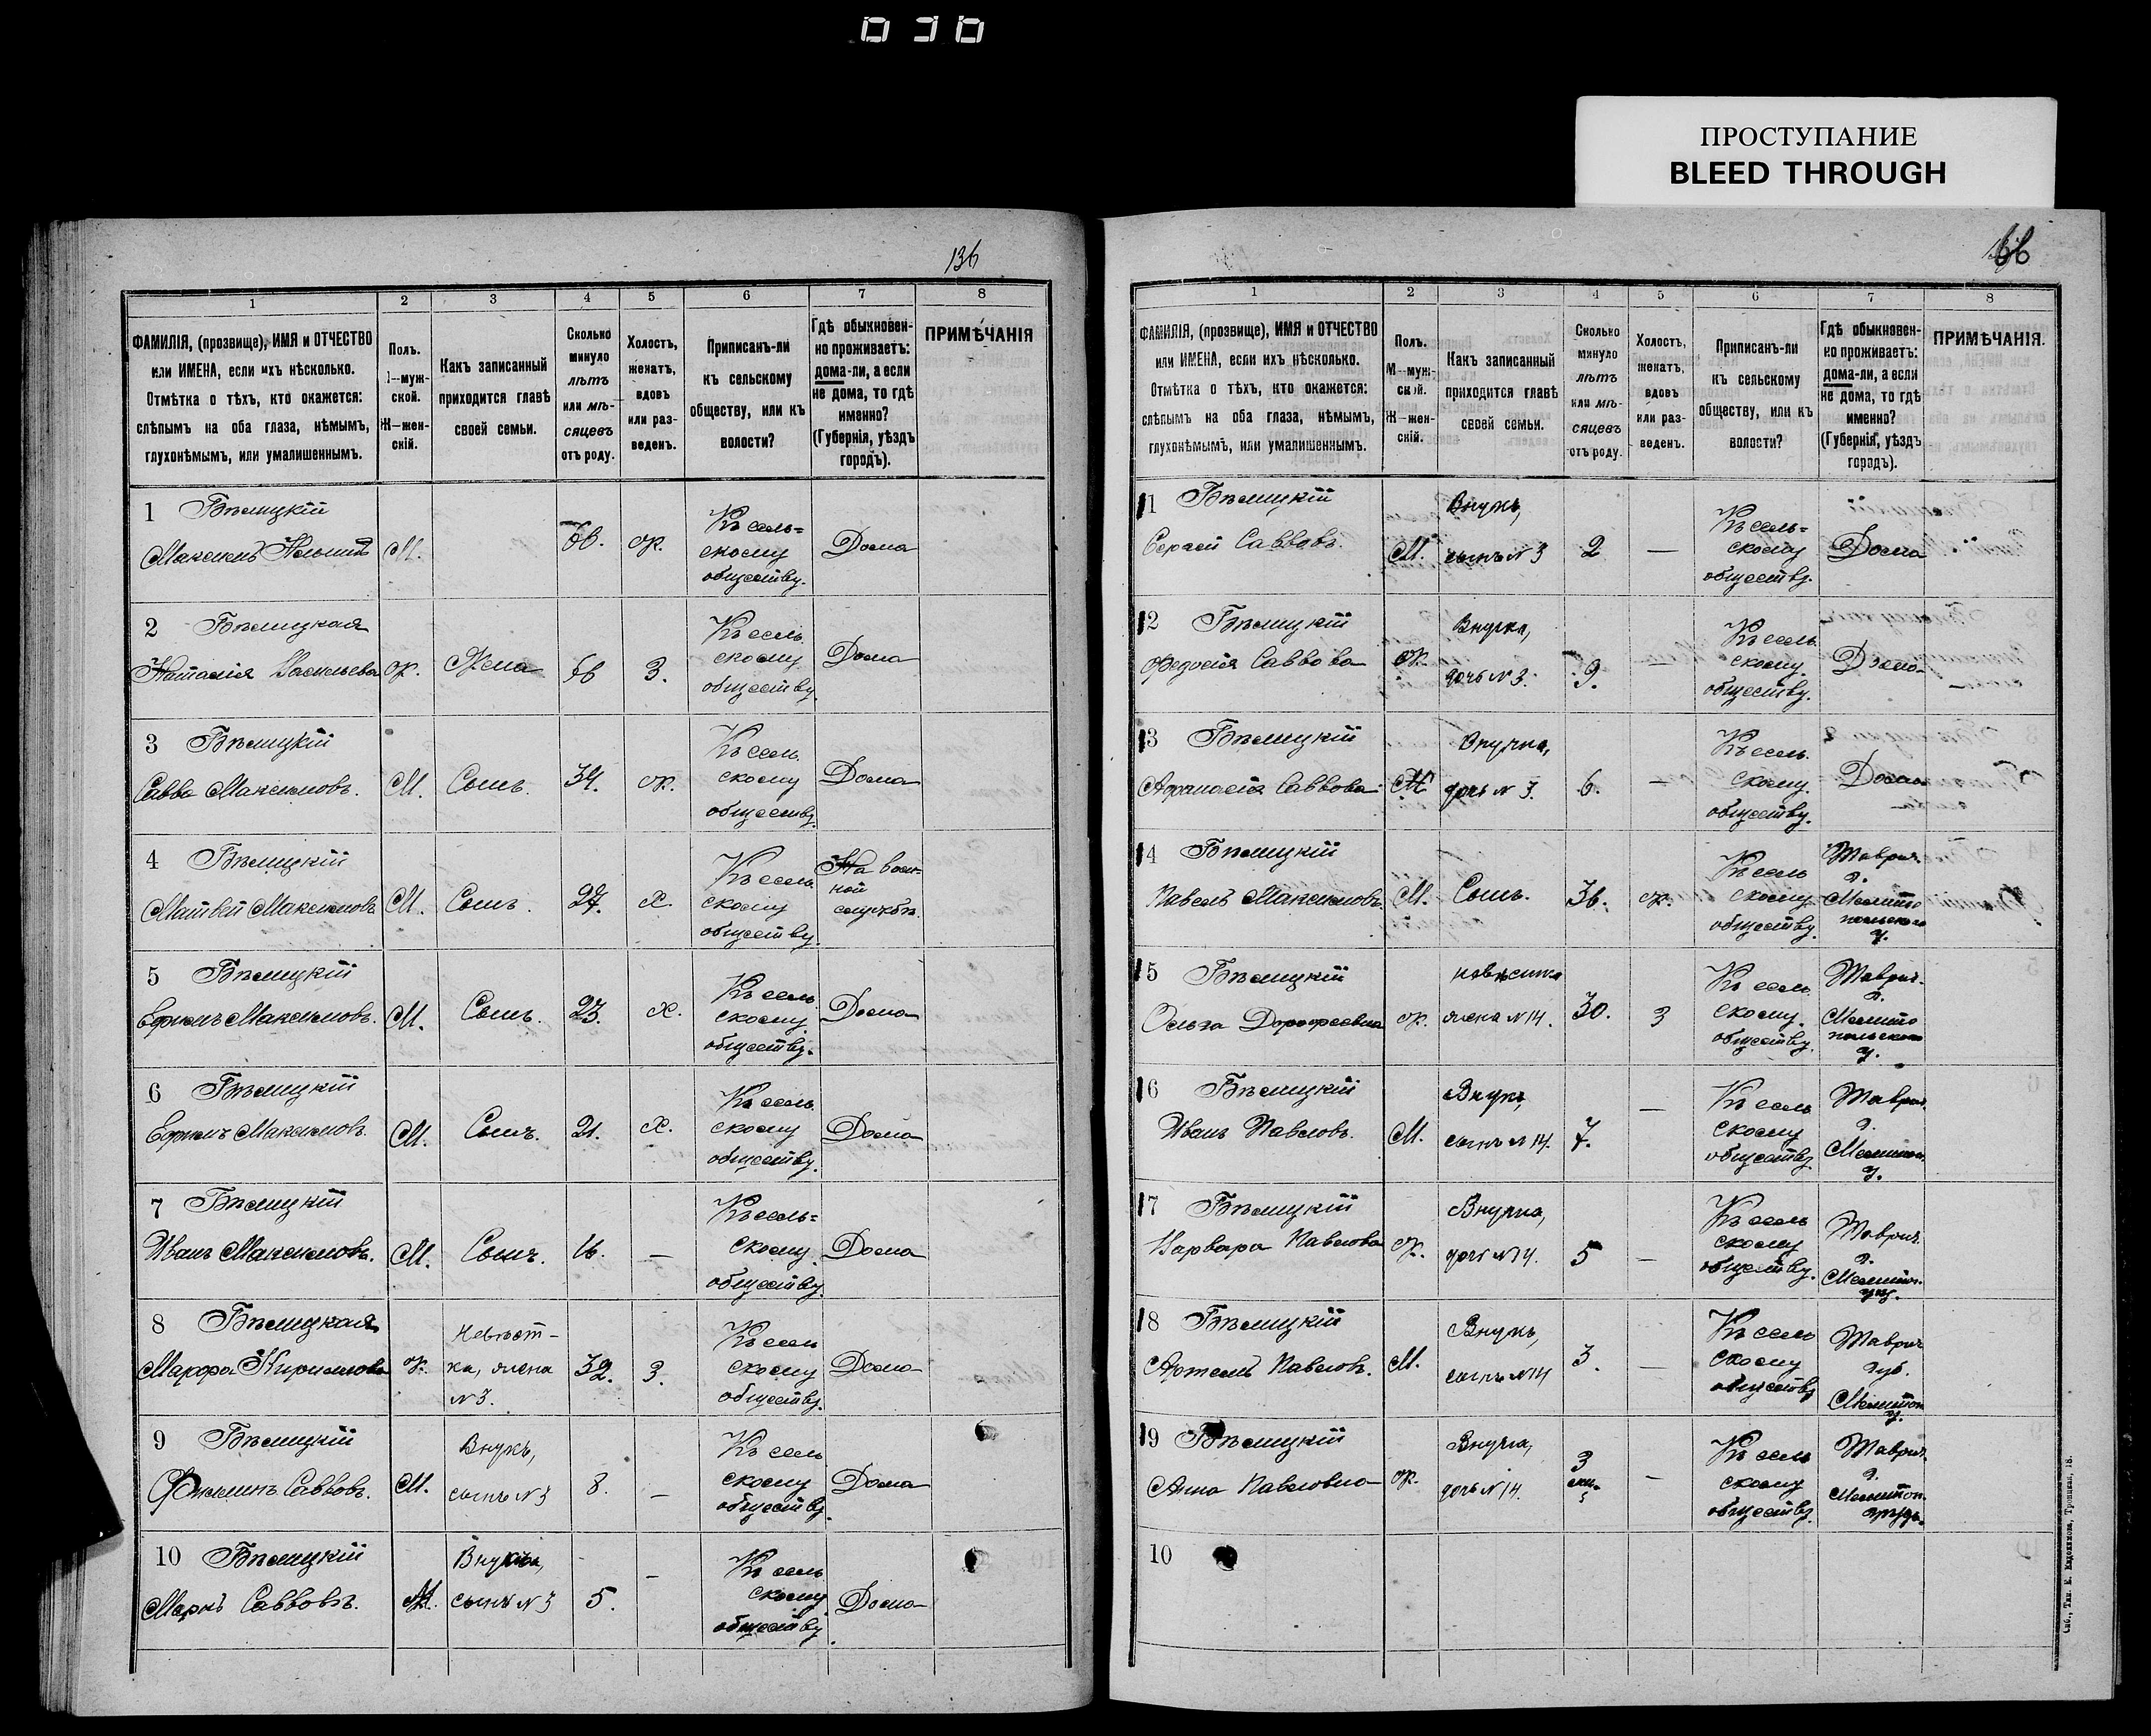 ПРОСТУПАНИЕ
BLEED THROUGH
136
1 2 3 4 5 6 7 8
ФАМИЛІЯ, (прозвище), ИМЯ и ОТЧЕСТВО
или ИМЕНА, если ихъ нѣсколько.
Отмѣтка о тѣхъ, кто окажется:
слѣпымъ на оба глаза, нѣмымъ,
глухонѣмымъ, или умалишеннымъ.
Полъ.
М—муж-
ской.
Ж—жен-
скій.
Какъ записанный
приходится главѣ
своей семьи.
Сколько
минуло
лѣтъ
или мѣ-
сяцевъ
отъ роду.
Холостъ,
женатъ,
вдовъ
или раз-
веденъ.
Приписанъ-ли
къ сельскому
обществу, или къ
волости?
Гдѣ обыкновен-
но проживаетъ:
дома-ли, а если
не дома, то гдѣ
именно?
(Губернія, уѣздъ
городъ).
ПРИМѢЧАНІЯ
1 Бѣлицкій
Максимъ
М.
ж.
Къ сель=
скому
обществу.
Дома
2 Бѣлицкая
Наталія Васильева
ж.
Жена
66
З.
Къ сель
скому
обществу
Дома
3 Бѣлицкій
Савва Максимовъ.
М.
Сынъ.
34.
ж.
Къ сель.
скому
обществу.
Дома
4 Бѣлицкій
Матвей Максимовъ
М.
Сынъ.
27.
Х.
Къ сель
скому
обществу.
На воен-
ной
службѣ.
5 Бѣлицкій
Ефимъ Максимовъ.
М.
Сынъ.
23.
Х.
Къ сель
скому.
обществу.
Дома
6 Бѣлицкій
Ефимъ Максимовъ.
М.
Сынъ.
21.
Х.
Къ сель.
скому
обществу.
Дома
7 Бѣлицкій
Иванъ Максимовъ.
М.
Сынъ.
16.
—
Къ сель=
скому.
обществу
Дома
8 Бѣлицкая
Марфа Кирилловна
ж.
Невѣст-
ка, жена
№ 3.
32.
З.
Къ сель
скому
обществу.
Дома
9 Бѣлицкій
Саввовъ.
М.
Внукъ,
сынъ № 3
8.
—
Къ сель
скому
обществу.
Дома
10 Бѣлицкій
Маркъ Саввовъ.
М.
Внукъ,
сынъ № 3
5.
—
Къ сель
скому
обществу.
Дома
1 2 3 4 5 6 7 8
ФАМИЛІЯ, (прозвище), ИМЯ и ОТЧЕСТВО
или ИМЕНА, если ихъ нѣсколько.
Отмѣтка о тѣхъ, кто окажется:
слѣпымъ на оба глаза, нѣмымъ,
глухонѣмымъ, или умалишеннымъ.
Полъ.
М—муж-
ской.
Ж—жен-
скій.
Какъ записанный
приходится главѣ
своей семьи.
Сколько
минуло
лѣтъ
или мѣ-
сяцевъ
отъ роду.
Холостъ,
женатъ,
вдовъ
или раз-
веденъ.
Приписанъ-ли
къ сельскому
обществу, или къ
волости?
Гдѣ обыкновен-
но проживаетъ:
дома-ли, а если
не дома, то гдѣ
именно?
(Губернія, уѣздъ
городъ).
ПРИМѢЧАНІЯ.
11 Бѣлицкій
Сергей Саввовъ.
М.
Внукъ,
сынъ № 3
2
—
Къ сель=
скому
обществу.
Дома
12 Бѣлицкій
Федосія Саввова
ж.
Внучка,
дочь № 3.
9.
—
Къ сель.
скому.
обществу.
Дома
13 Бѣлицкій
Афанасія Саввова
Внучка,
дочь № 3.
6.
—
Къ сель.
скому.
обществу.
Дома
14 Бѣлицкій
Павелъ Максимовъ.
М.
Сынъ.
36.
ж.
Къ сель
скому
обществу.
Таврич.
г.
Мелито
польскаго
у.
15 Бѣлицкій
Ольга Дорофеевна
ж.
невѣстка
жена № 14.
30.
З
Къ сель
скому.
обществу.
Таврич.
г.
Мелито
польскаго
у.
16 Бѣлицкій
Иванъ Павловъ.
М.
Внукъ,
сынъ № 14.
7.
—
Къ сель
скому
обществу
Таврич.
г.
Мелитоп.
у.
17 Бѣлицкій
Варвара Павлова
ж.
Внучка,
дочь № 14.
5
—
Къ сель
скому
обществу.
Таврич.
г.
Мелитоп.
18 Бѣлицкій
Артемъ Павловъ.
М.
Внукъ,
сынъ № 14
3.
—
Къ сель
скому
обществу
Таврич
губ.
Мелитоп
у.
19 Бѣлицкій
Анна Павловна
ж.
Внучка,
дочь № 14.
3
—
Къ сель
скому
обществу.
Таврич.
г.
Мелитоп.
10
Спб., Тип. Е. Евдокимова, Троицкая, 18.